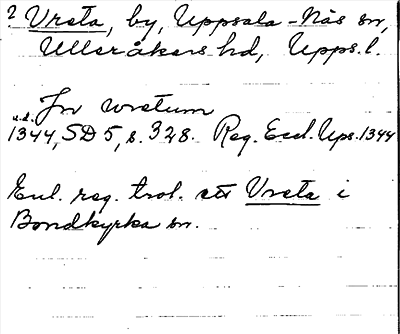 ? Vreta, by, Uppsala-Näs sn,
Ulleråkers hd, Upps. l.
In wretum
u.d.
1344, SD 5, s. 328. Reg. Eccl. Ups. 1344
Enl. reg. trol. ett Vreta i
Bondkyrka sn.